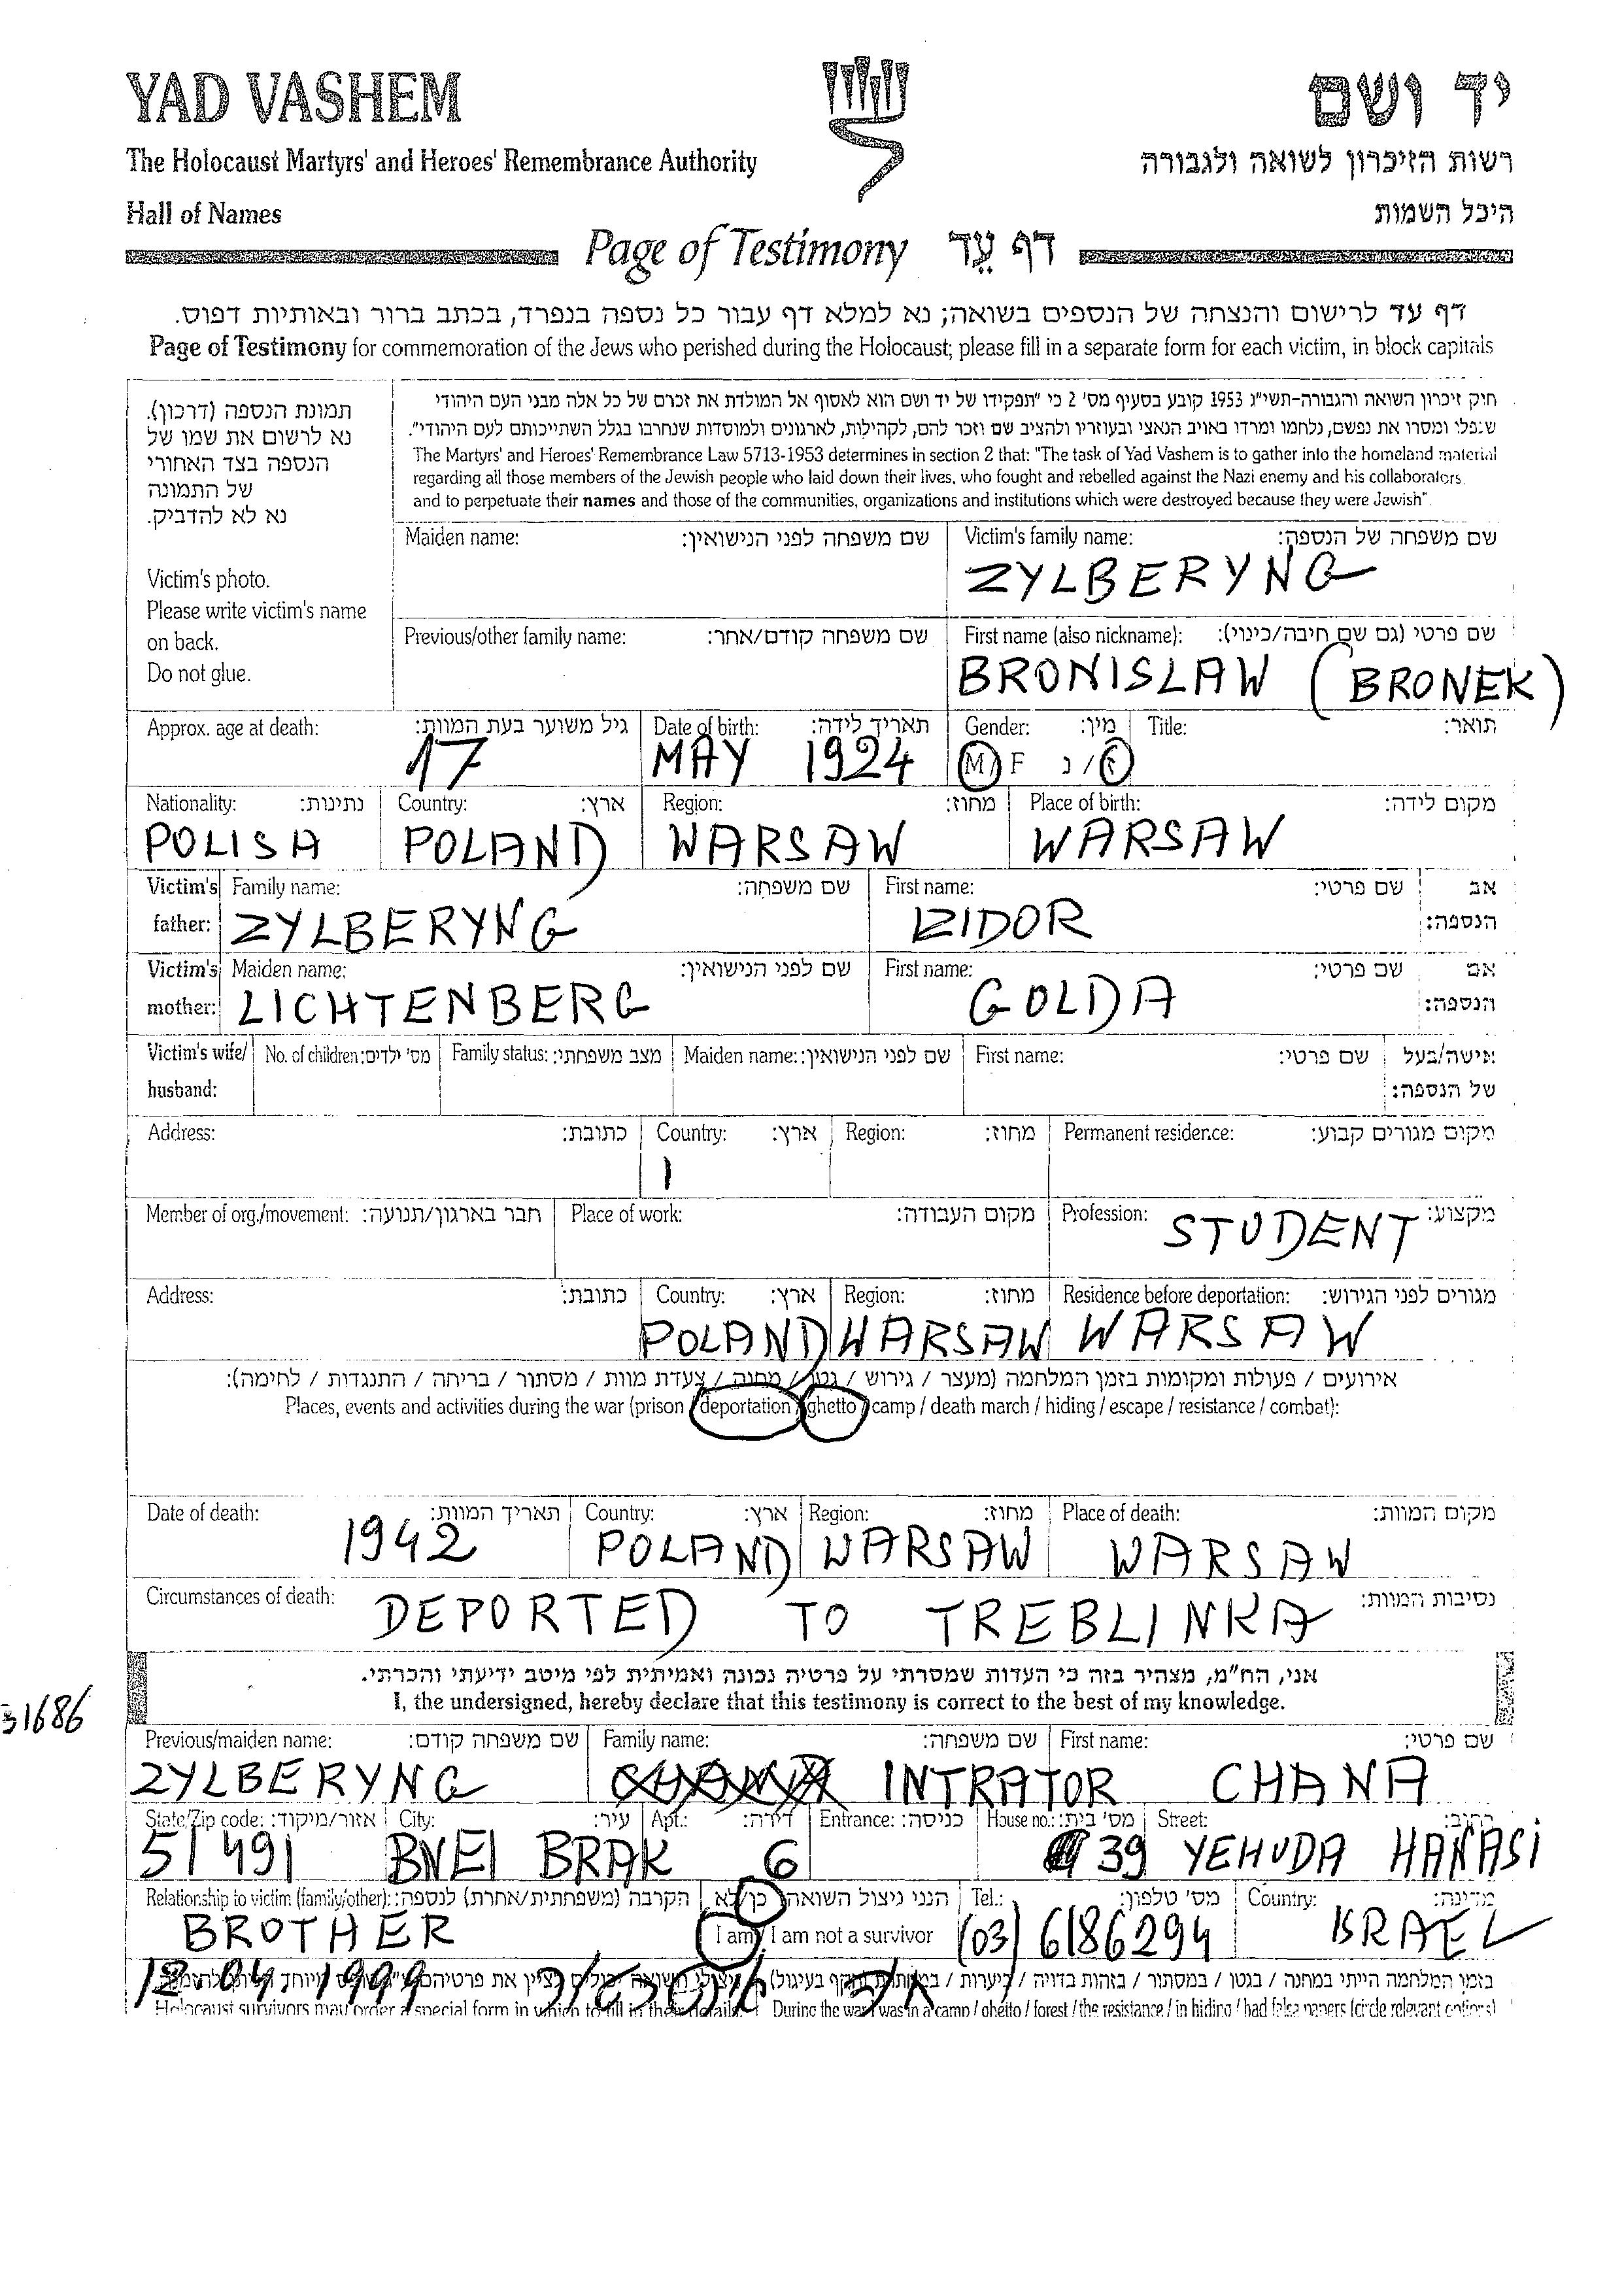 YAD VASHEM
יד ושם
The Holocaust Martyrs' and Heroes' Remembrance Authority
רשות הזיכרון לשואה ולגבורה
Hall of Names
היכל השמות
Page of Testimony דף עֵד
דף עד לרישום והנצחה של הנספים בשואה; נא למלא דף עבור כל נספה בנפרד, בכתב ברור ובאותיות דפוס.
Page of Testimony for commemoration of the Jews who perished during the Holocaust; please fill in a separate form for each victim, in block capitals
תמונת הנספה (דרכון).
נא לרשום את שמו של
הנספה בצד האחורי
של התמונה
נא לא להדביק.
Victim's photo.
Please write victim's name
on back.
Do not glue.
חיק זיכרון השואה והגבורה-תשי"ג 1953 קובע בסעיף מס' 2 כי "תפקידו של יד ושם הוא לאסוף אל המולדת את זכרם של כל אלה מבני העם היהודי
שנפלו ומסרו את נפשם, נלחמו ומרדו באויב הנאצי ובעוזריו ולהציב שם וזכר להם, לקהילות, לארגונים ולמוסדות שנחרבו בגלל השתייכותם לעם היהודי".
The Martyrs' and Heroes' Remembrance Law 5713-1953 determines in section 2 that: "The task of Yad Vashem is to gather into the homeland material
regarding all those members of the Jewish people who laid down their lives, who fought and rebelled against the Nazi enemy and his collaborators,
and to perpetuate their names and those of the communities, organizations and institutions which were destroyed because they were Jewish".
Maiden name: שם משפחה לפני הנישואין:
Victim's family name: שם משפחה של הנספה:
ZYLBERYNG
Previous/other family name: שם משפחה קודם/אחר:
First name (also nickname): שם פרטי (גם שם חיבה/כינוי):
BRONISLAW (BRONEK)
Approx. age at death: גיל משוער בעת המוות:
17
Date of birth: תאריך לידה:
MAY 1924
Gender: מין:
M F נ / ז
Title: תואר:
Nationality: נתינות:
POLISH
Country: ארץ:
POLAND
Region: מחוז:
WARSAW
Place of birth: מקום לידה:
WARSAW
Victim's father: Family name: שם משפחה:
ZYLBERYNG
First name: שם פרטי: אב הנספה:
IZIDOR
Victim's mother: Maiden name: שם לפני הנישואין:
LICHTENBERG
First name: שם פרטי: אם הנספה:
GOLDA
Victim's wife/ husband: No. of children: מס' ילדים: Family status: מצב משפחתי: Maiden name: שם לפני הנישואין: First name: שם פרטי: אישה/בעל של הנספה:
Address: כתובת: Country: ארץ: Region: מחוז: Permanent residence: מקום מגורים קבוע:
Member of org./movement: חבר בארגון/תנועה: Place of work: מקום העבודה: Profession: מקצוע:
STUDENT
Address: כתובת: Country: ארץ: Region: מחוז: Residence before deportation: מגורים לפני הגירוש:
POLAND WARSAW WARSAW
אירועים / פעולות ומקומות בזמן המלחמה (מעצר / גירוש / גטו / מחנה / צעדת מוות / מסתור / בריחה / התנגדות / לחימה):
Places, events and activities during the war (prison / deportation / ghetto / camp / death march / hiding / escape / resistance / combat):
Date of death: תאריך המוות: Country: ארץ: Region: מחוז: Place of death: מקום המוות:
1942 POLAND WARSAW WARSAW
Circumstances of death: נסיבות המוות:
DEPORTED TO TREBLINKA
אני, הח"מ, מצהיר בזה כי העדות שמסרתי על פרטיה נכונה ואמיתית לפי מיטב ידיעתי והכרתי.
I, the undersigned, hereby declare that this testimony is correct to the best of my knowledge.
31686
Previous/maiden name: שם משפחה קודם: Family name: שם משפחה: First name: שם פרטי:
ZYLBERYNG INTRATOR CHANA
State/Zip code: אזור/מיקוד: City: עיר: Apt.: דירה: Entrance: כניסה: House no.: מס' בית: Street: רחוב:
51491 BNEI BRAK 6 39 YEHUDA HANASI
Relationship to victim (family/other): הקרבה (משפחתית/אחרת) לנספה: הנני ניצול השואה כן/לא Tel.: מס' טלפון: Country: מדינה:
BROTHER I am / I am not a survivor (03) 6186294 ISRAEL
12.04.1999
בזמן המלחמה הייתי במחנה / בגטו / במסתור / בזהות בדויה / ביערות /
Holocaust survivors may order a special form in which to fill in their details. During the war I was in a camp / ghetto / forest / the resistance / in hiding / had false papers (circle relevant options)